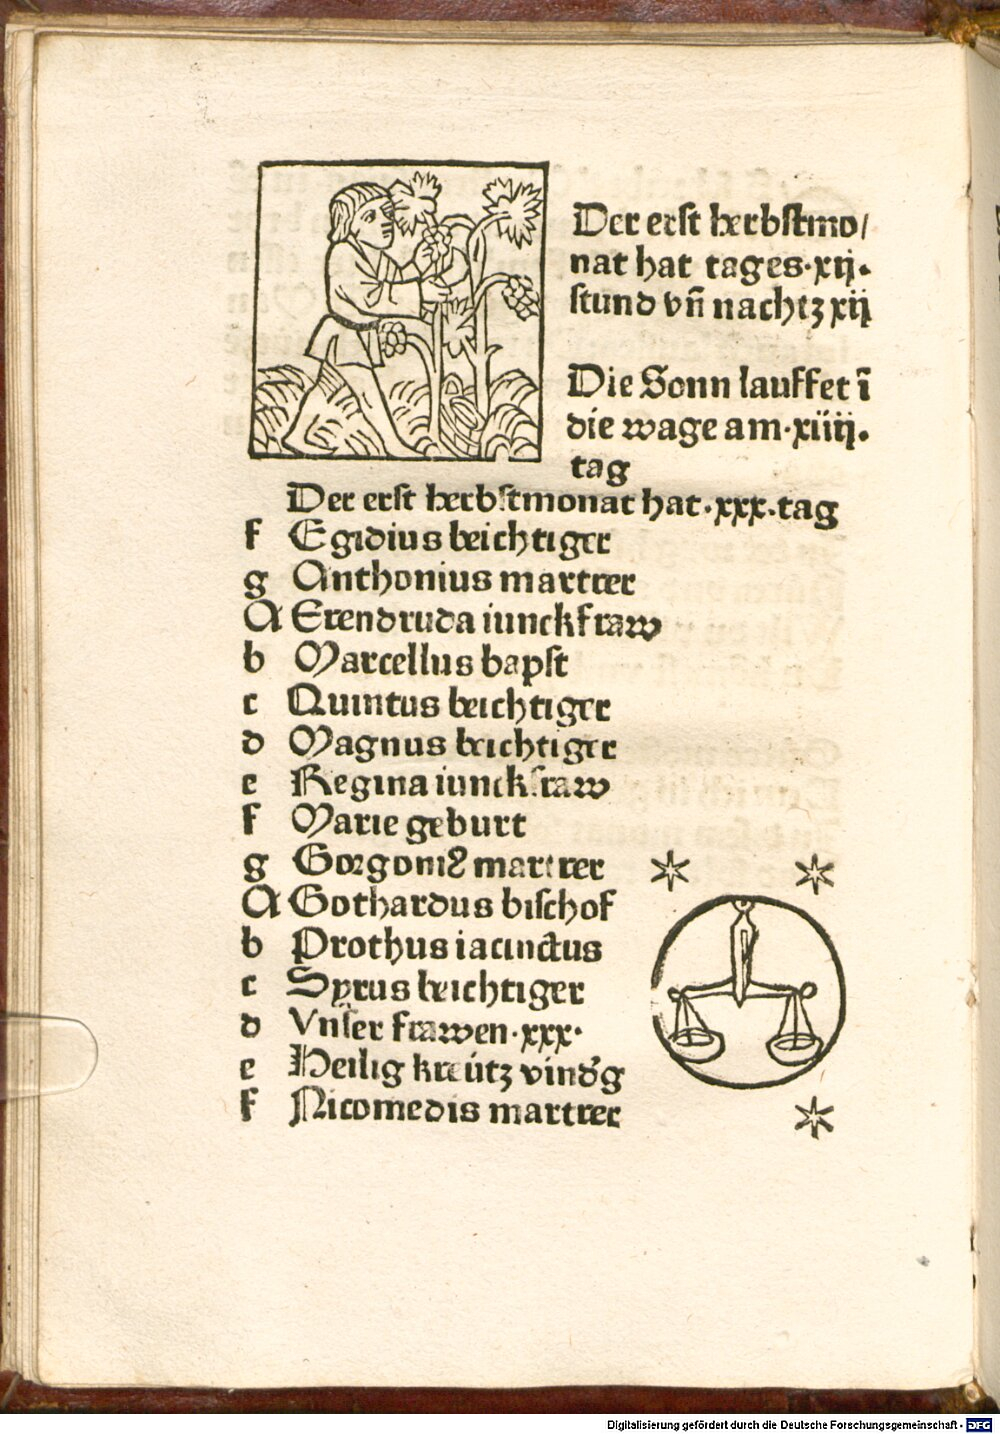 Der erst herbstmo/
nat hat tages·xij·
stund vn̄ nachtz xij
Die Sonn lauffet ī
die wage am·xiiij·
tag
Der erst herbstmonat hat·xxx·tag
f Egidius beichtiger
g Anthonius martrer
A Erendruda iunckfraw
b Marcellus bapst
c Quintus beichtiger
d Magnus beichtiger
e Regina iunckfraw
f Marie geburt
g Gorgoniꝰ martrer
A Gothardus bischof
b Prothus iacinctus
c Syrus beichtiger
d Vnser frawen·xxx·
e Heilig kreütz vind'g
f Nicomedis martrer
Digitalisierung gefördert durch die Deutsche Forschungsgemeinschaft - DFG